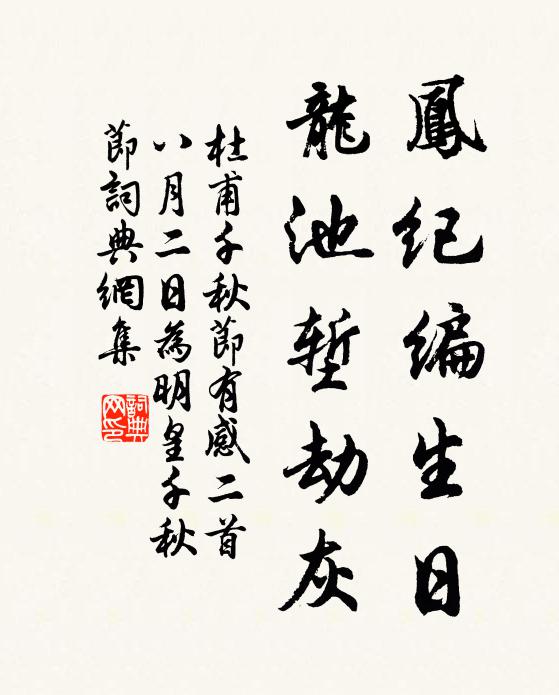 鳳纪编生日
龍池塹劫灰
杜甫千秋節有感二首
八月二日為明皇千秋
節詞典網集
詞典
网印